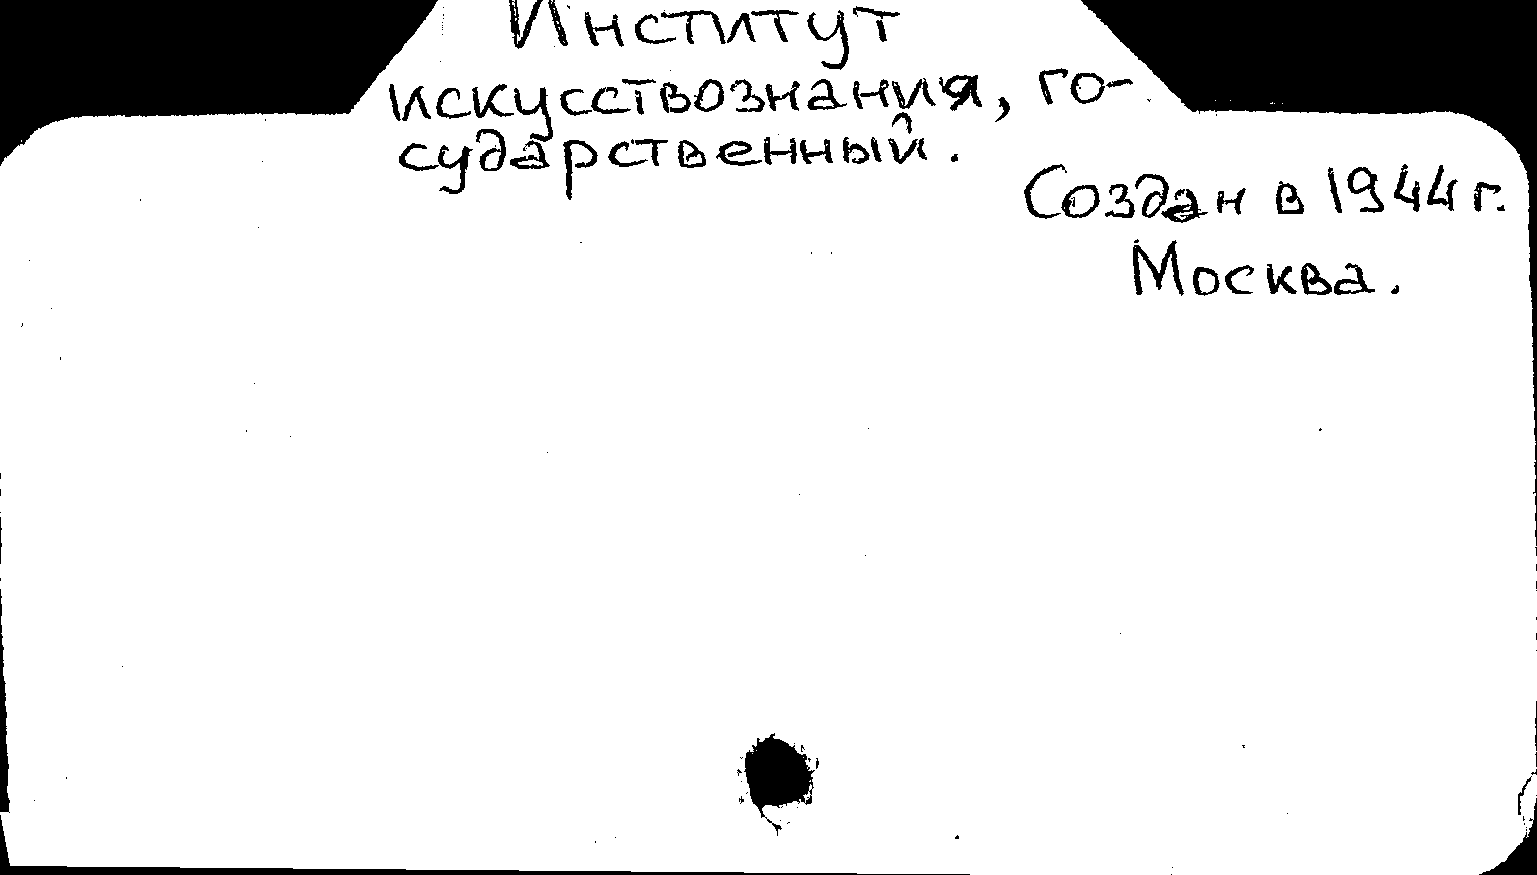 Институт
искусствознания, го-
сударственный.
Создан в 1944 г.
Москва.